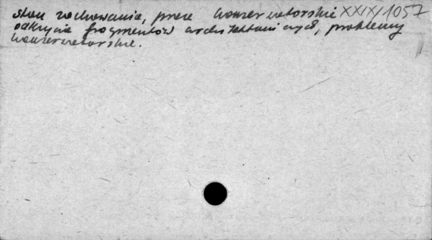 stan zachowania, prace konserwatorskie XXIX/1057
odkrycia fragmentów architektonicznych, problemy
konserwatorskie.